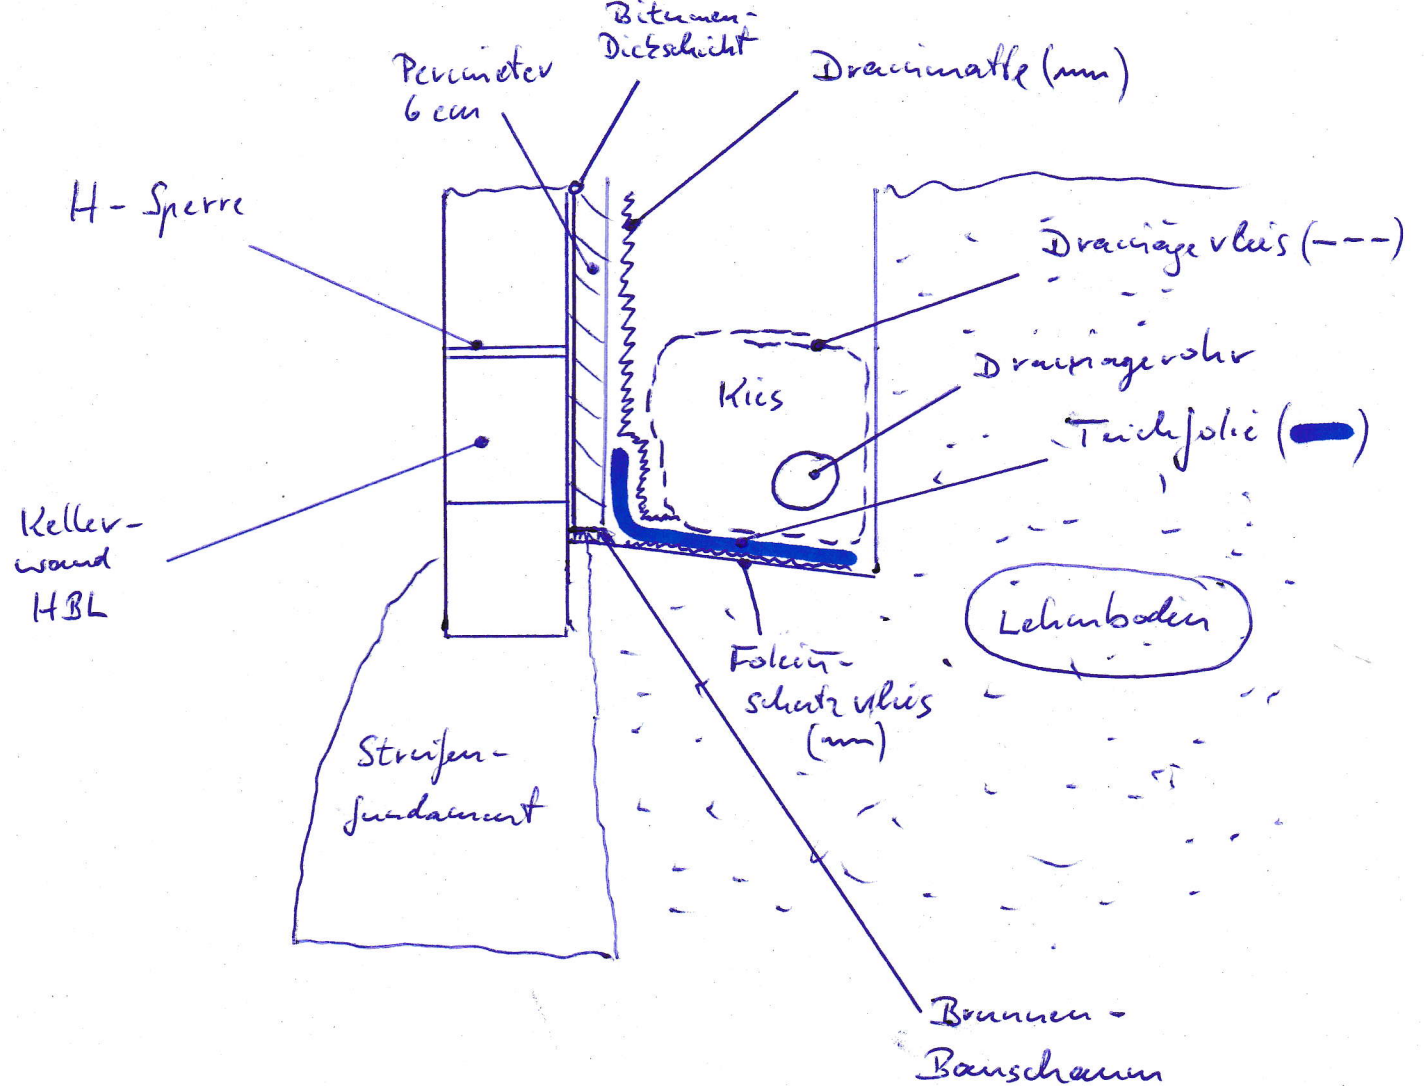 Bitumen-
Dickschicht
Perimeter
6 cm
Drainmatte (    )
H - Sperre
Drainagevlies (---)
Drainagerohr
Kies
Teichfolie (    )
Keller-
wand
HBL
Lehmboden
Folien-
schutzvlies
(    )
Streifen-
fundament
Brunnen-
Bauschaum